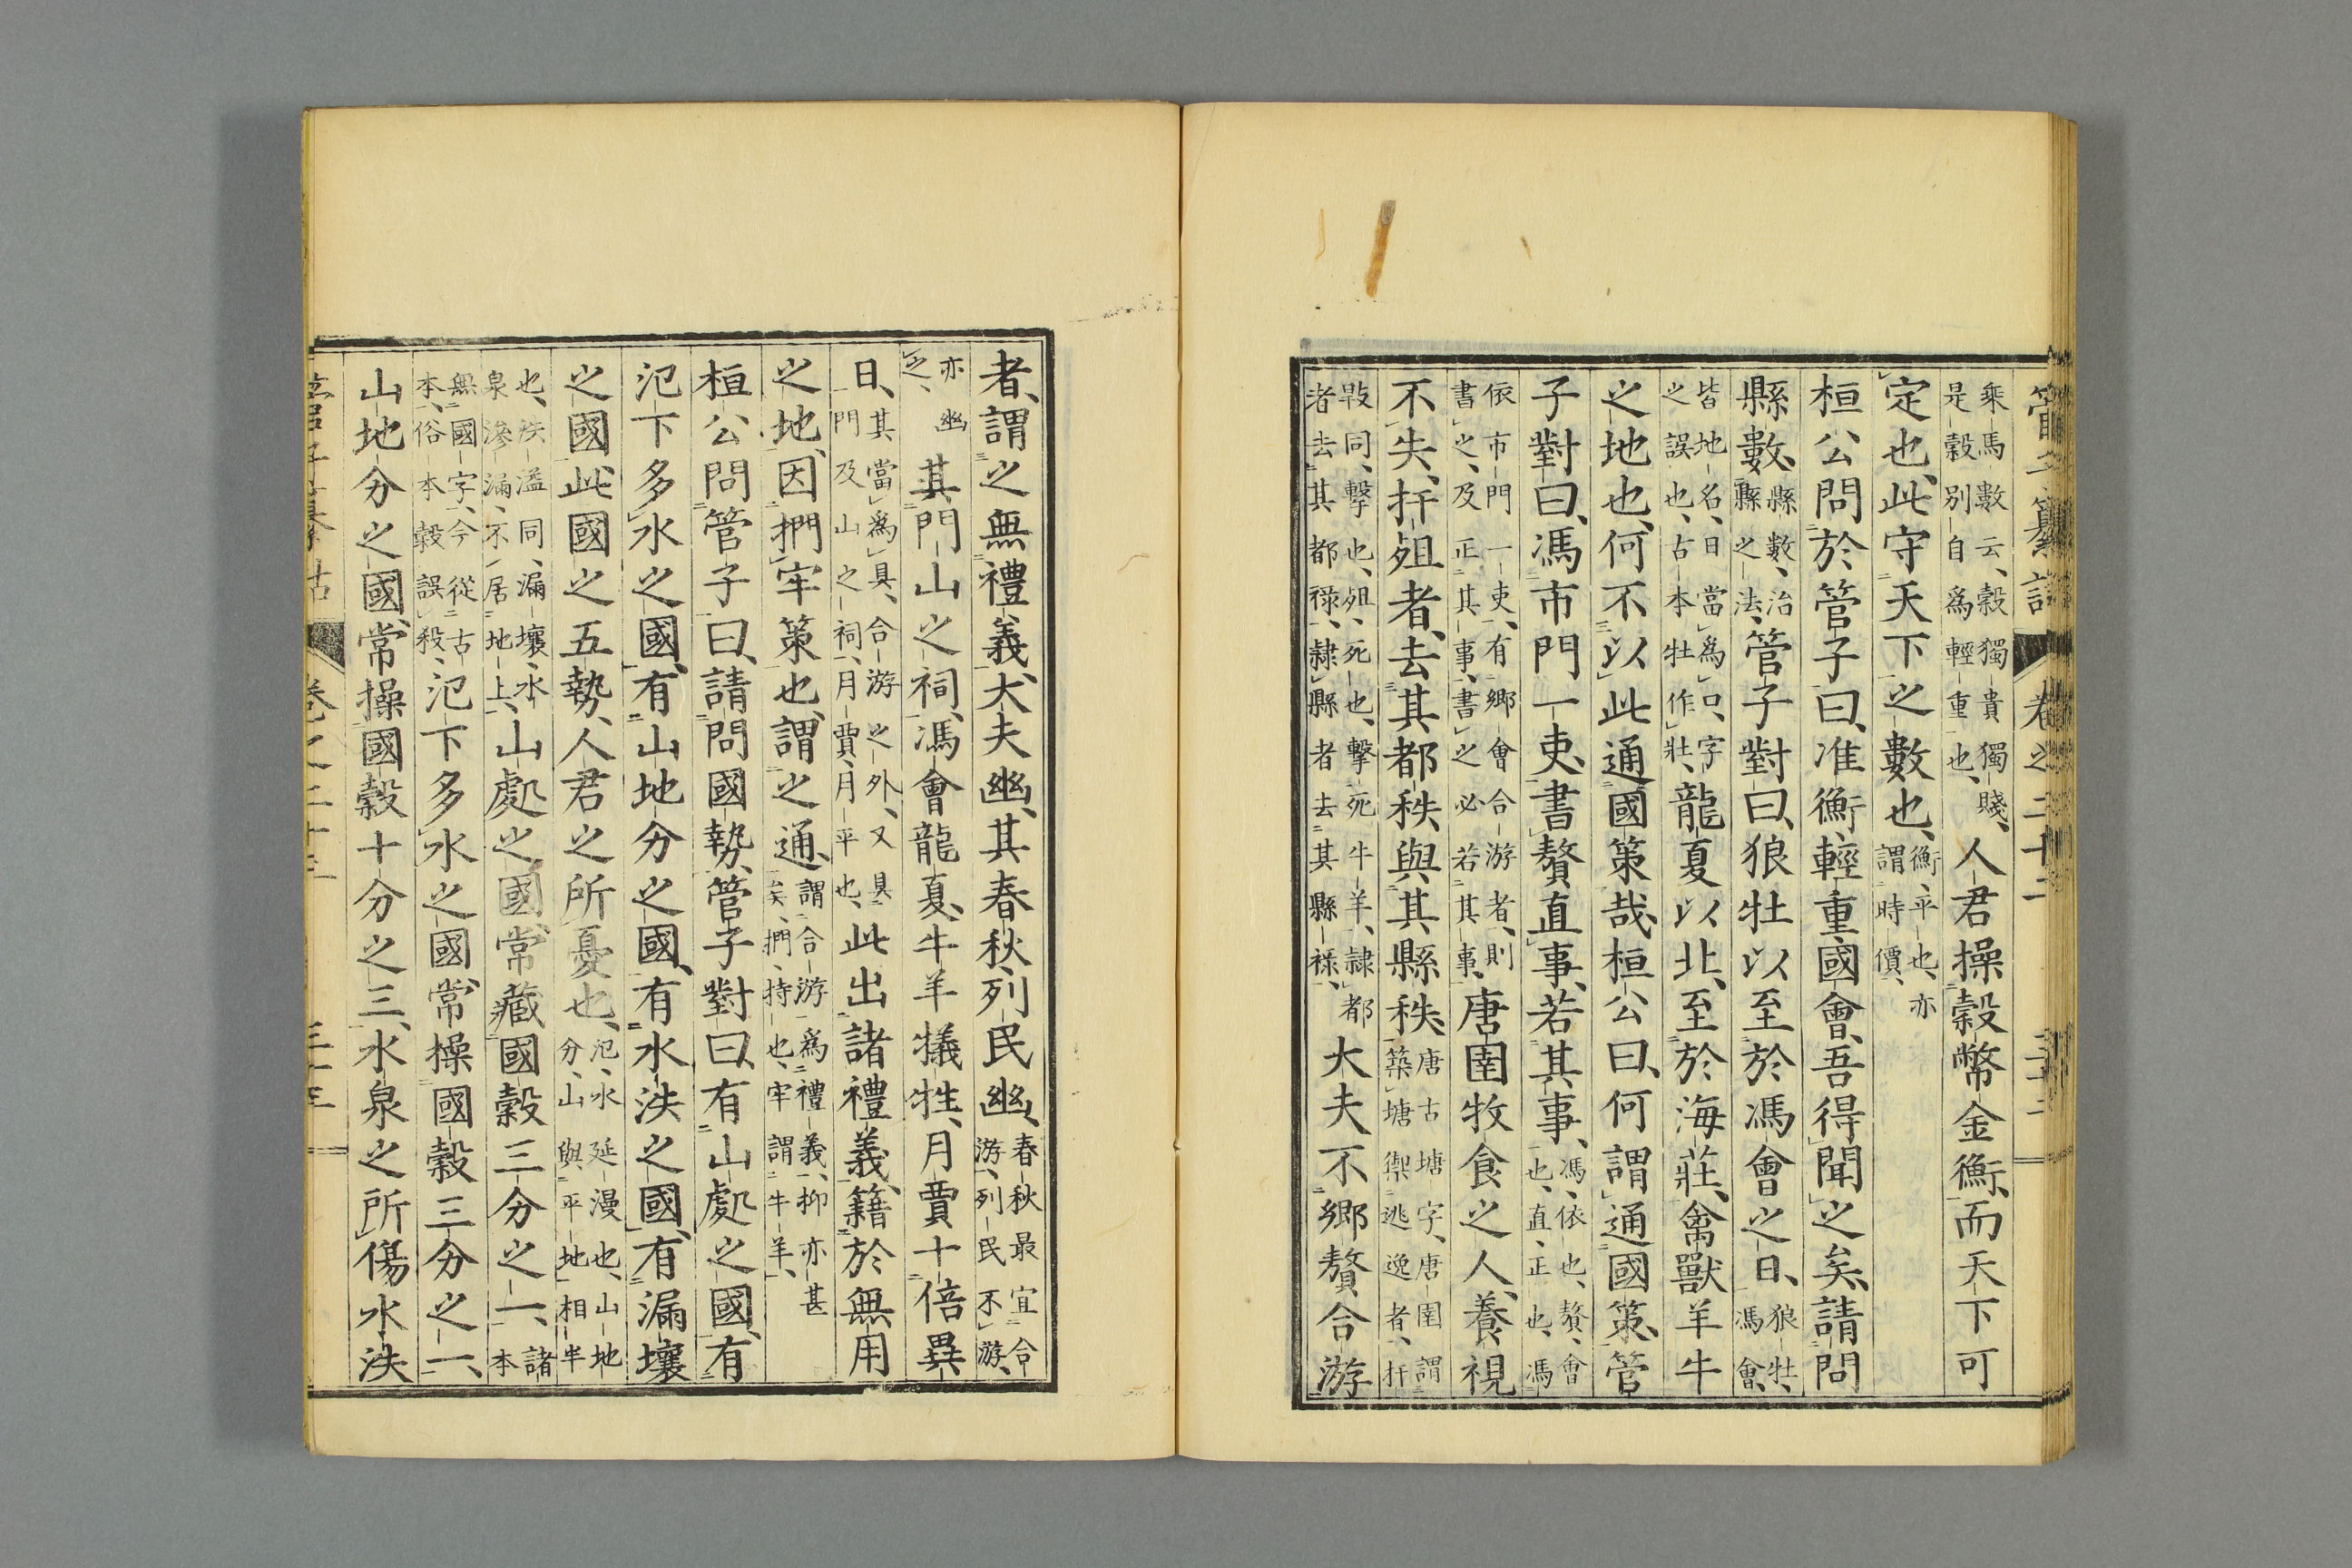 管子纂詁 卷之二十二
乘馬數云、穀獨貴獨賤、
是穀別自爲輕重也、
人君操穀幣金衡、而天下可
定也、此守天下之數也、
衡、平也、亦
謂時價、
桓公問於管子曰、准衡輕重國會、吾得聞之矣、請問
縣數、
縣數、治
縣之法、
管子對曰、狼牡以至於馮會之日、
狼牡、
馮會、
皆地名、日當爲口、字
之誤也、古本牡作壯、
龍夏以北、至於海莊、禽獸羊牛
之地也、何不以此通國策哉、桓公曰、何謂通國策、管
子對曰、馮市門一吏、書贅直事、若其事、
馮、依也、贅、會
也、直、正也、馮
依市門一吏、有鄉會合游者、則
書之、及正其事、書之必若其事、
唐圉牧食之人、養視
不失、扞殂者、去其都秩、與其縣秩、
唐古塘字、唐圉謂
築塘禦逃逸者、扞
同、擊也、殂、死也、擊死牛羊、隷都
者去其都祿、隷縣者去其縣祿、
大夫不鄉贅合游
者、謂之無禮義、大夫幽、其春秋列民幽、
春秋最宜合
游、列民不游、
亦幽
之、
其門山之祠、馮會龍夏、牛羊犧牲、月賈十倍異
日、
其當爲具、合游之外、又具
門及山之祠、月賈、月平也、
此出諸禮義、籍於無用
之地、因捫牢策也、謂之通、
謂合游爲禮義、抑亦甚
矣、捫、持也、牢謂牛羊、
桓公問管子曰、請問國勢、管子對曰、有山處之國、有
氾下多水之國、有山地分之國、有水泆之國、有漏壤
之國、此國之五勢、人君之所憂也、
氾、水延漫也、山地
分、山與平地相半
也、泆溢同、漏壤、水
泉滲漏、不居地上、
山處之國、常藏國穀三分之一、
諸
本
無國字、今從古
本、俗本穀誤殺、
氾下多水之國、常操國穀三分之一、
山地分之國、常操國穀十分之三、水泉之所傷水泆